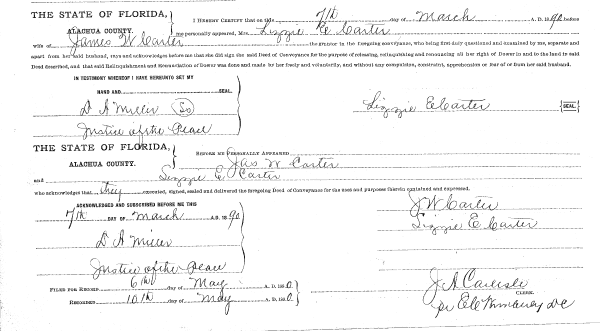 THE STATE OF FLORIDA,
ALACHUA COUNTY.
I HEREBY CERTIFY that on this 7th day of March A. D. 1890 before
me personally appeared, Mrs. Lizzie E Carter
wife of James W Carter the grantor in the foregoing conveyance, who being first duly questioned and examined by me, separate and
apart from her said husband, says and acknowledges before me that she did sign the said Deed of Conveyance for the purpose of releasing, relinquishing and renouncing all her right of Dower in and to the land in said
Deed described, and that said Relinquishment and Renunciation of Dower was done and made by her freely and voluntarily, and without any compulsion, constraint, apprehension or fear of or from her said husband.
IN TESTIMONY WHEREOF I HAVE HEREUNTO SET MY
HAND AND SEAL
D A Miller
Justice of the Peace
Lizzie E Carter SEAL.
THE STATE OF FLORIDA,
ALACHUA COUNTY.
BEFORE ME PERSONALLY APPEARED Jas W Carter
and Lizzie E Carter
who acknowledged that they executed, signed, sealed and delivered the foregoing Deed of Conveyance for the uses and purposes therein contained and expressed.
ACKNOWLEDGED AND SUBSCRIBED BEFORE ME THIS
7th DAY OF March A. D. 1890
D A Miller
Justice of the Peace
J W Carter
Lizzie E Carter
FILED FOR RECORD 6th day of May A. D. 1890
RECORDED 10th day of May A. D. 1890
J A Carlisle
CLERK.
per DC